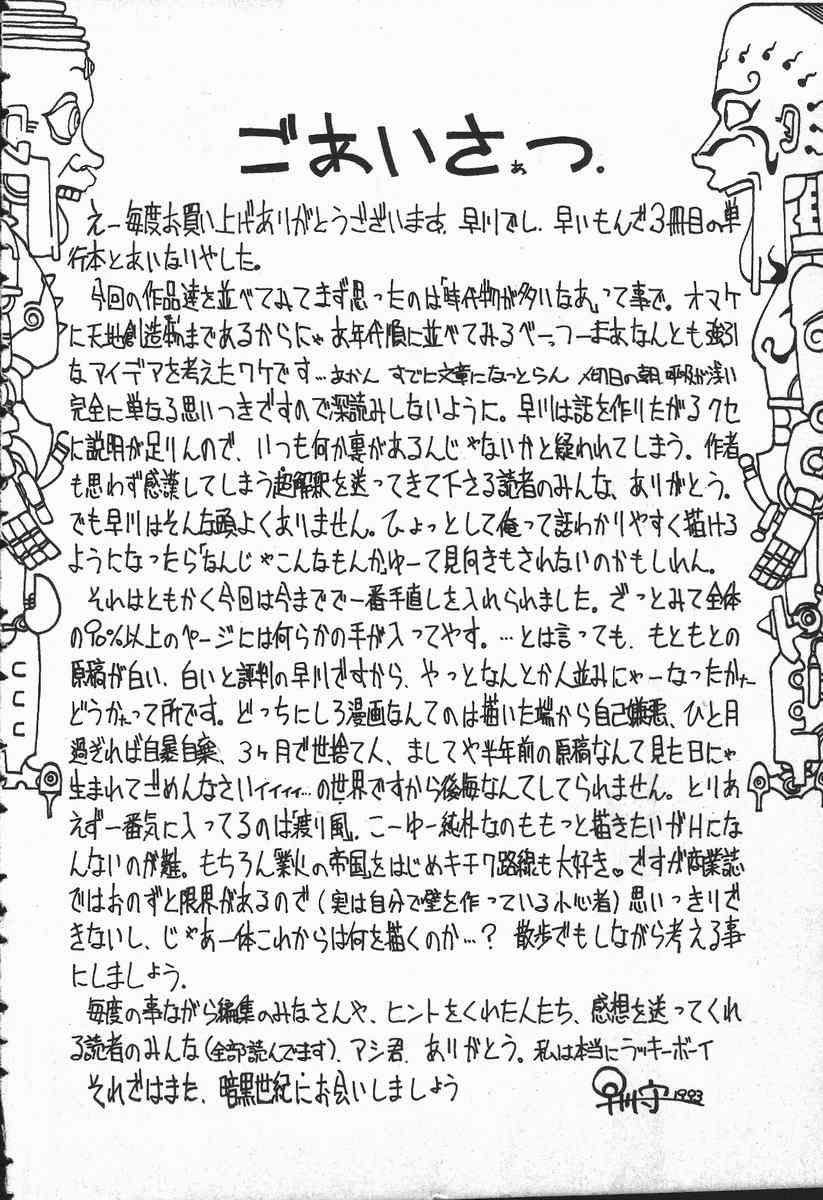 ごあいさぁつ.
えー毎度お買い上げありがとうございます。早川でし。早いもんで3冊目の単
行本とあいなりやした。
今回の作品達を並べてみてまず思ったのは「時代物が多いなあ」って事で。オマケ
に天地創造まであるからにゃお年代順に並べてみるべーっつーまあなんとも強引
なアイデアを考えたワケです…あかん すでに文章になっとらん 〆切日の朝 呼吸が浅い
完全に単なる思いつきですので深読みしないように。早川は話を作りたがるクセ
に説明が足りんので、いつも何か裏があるんじゃないかと疑われてしまう。作者
も思わず感嘆してしまう超解釈を送ってきて下さる読者のみんな、ありがとう。
でも早川はそんな頭よくありません。ひょっとして俺って話わかりやすく描ける
ようになったら「なんじゃこんなもんか」ゆーて見向きもされないのかもしれん。
それはともかく今回は今までで一番手直しを入れられました。ざっとみて全体
の90%以上のページには何らかの手が入ってやす。…とは言っても、もともとの
原稿が白い、白いと評判の早川ですから、やっとなんとか人並みにゃーなったかなー
どうかなって所です。どっちにしろ漫画なんてのは描いた端から自己嫌悪、ひと月
過ぎれば自暴自棄、3ヶ月で世捨て人、ましてや半年前の原稿なんて見た日にゃ
生まれてごめんなさいィィィィ…の世界ですから後悔なんてしてられません。とりあ
えず一番気に入ってるのは「渡り風」。こーゆー純朴なのももっと描きたいがHにな
んないのが難。もちろん業火の帝国をはじめキチク路線も大好き♥ですが商業誌
ではおのずと限界があるので(実は自分で壁を作っている小心者)思いっきりで
きないし、じゃあ一体これからは何を描くのか…? 散歩でもしながら考える事
にしましょう。
毎度の事ながら編集のみなさんや、ヒントをくれた人たち、感想を送ってくれ
る読者のみんな(全部読んでます)、アシ君、ありがとう。私は本当にラッキーボーイ
それではまた、暗黒世紀にお会いしましょう
早川守 1993